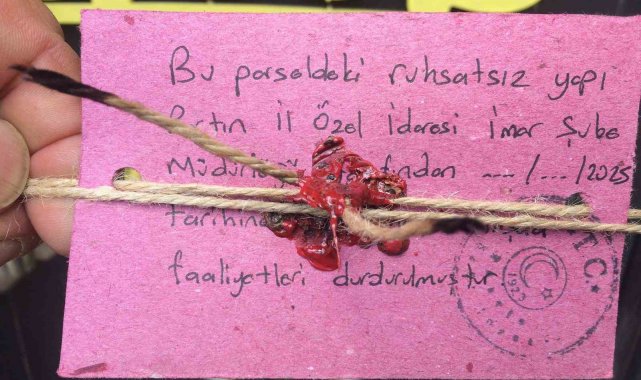 Bu parseldeki ruhsatsız yapı
Bartın İl Özel İdaresi İmar Şube
Müdürlüğü tarafından ---/---/2025
tarihinde
faaliyetleri durdurulmuştur.
T.C.